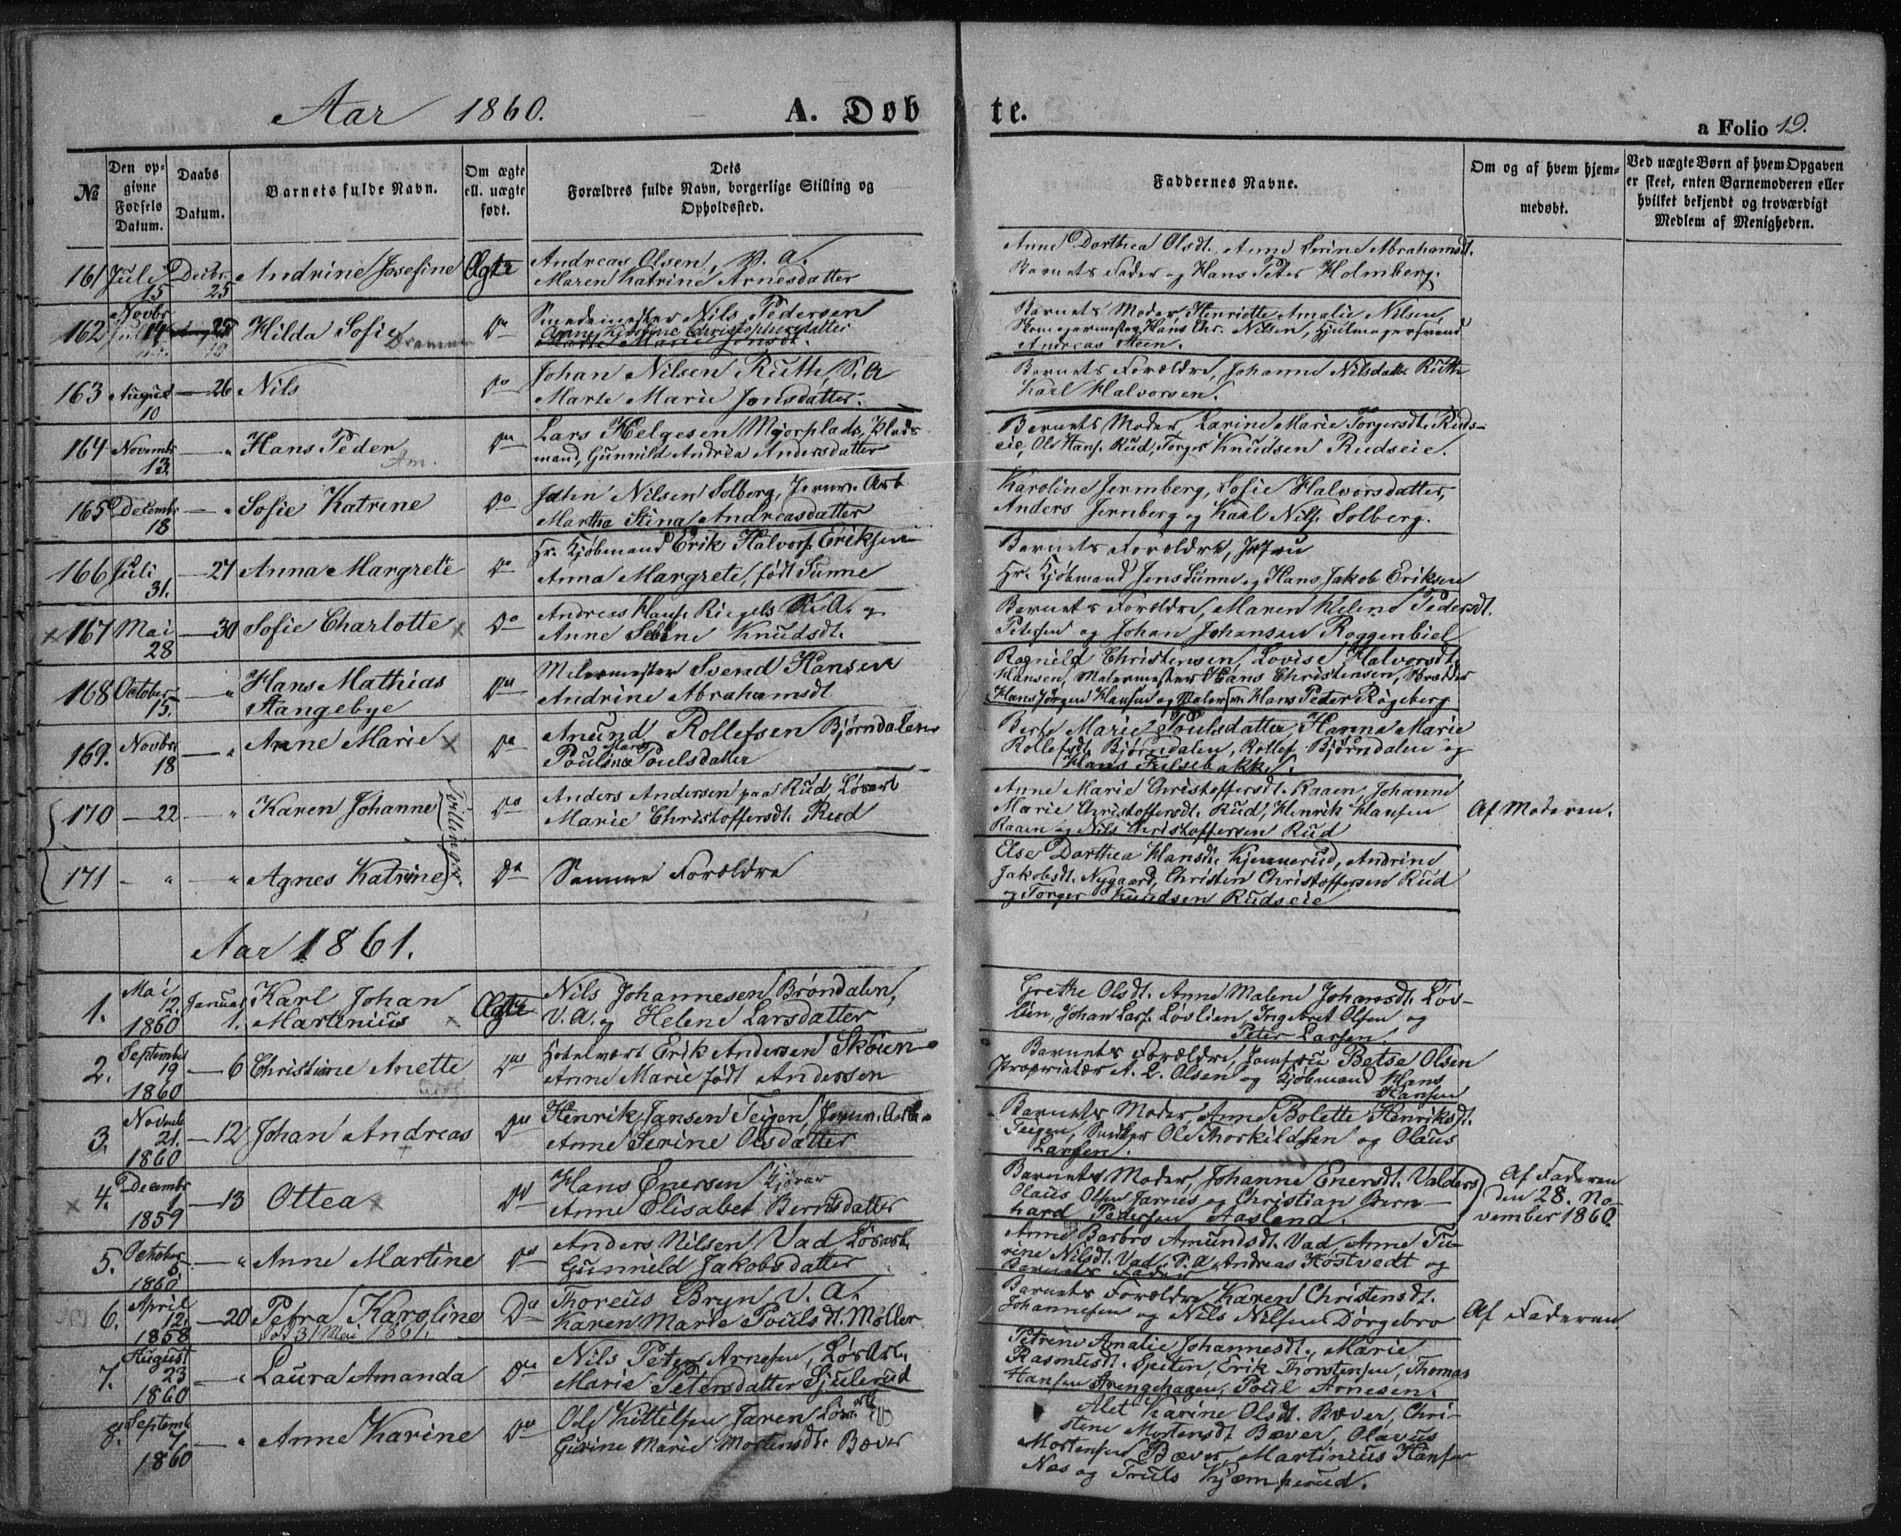 Aar 1860.
A. Døbte.
a Folio 19.
№
Den opgivne Fødsels Datum.
Daabs Datum.
Barnets fulde Navn.
Om ægte ell. uægte født.
Dets Forældres fulde Navn, borgerlige Stilling og Opholdssted.
Faddernes Navne.
Om og af hvem hjemmedøbt.
Ved uægte Børn af hvem Opgaven er skeet, enten Barnemoderen eller hvilket bekjendt og troværdigt Medlem af Menigheden.
161 Juli 15 Decbr. 25 Andrine Josefine Ægte
Andreas Olsen,
Maren Katrine Arnesdatter
Anne Dorthea Olsdt. Anne Serine Abrahamsdt.
Barnets Fader og Hans Peter Holmberg.
162 Novbr. 14 25 Hilda Sofie Drammen Do
Smedemester Nils Pedersen
Anne Kirstine Christophersdatter
Marie Jonsdt.
Barnets Moder, Henriette Amalie Nilsen,
Skomagermester Hans Chr. Nilsen, Hjulmagersvend
Andreas Steen.
163 August 10 — 26 Nils Do
Johan Nilsen Ruth, S.A
Marte Marie Jonsdatter.
Barnets Forældre, Johanne Nilsdatter Ruth
Karl Halvorsen.
164 Novembr 13 — " Hans Peder Do
Lars Helgesen Myorplads, Plads-
mand, Gunnild Andrea Andersdatter
Barnets Moder, Larine Marie Torgersdt. Ruds-
eie, Ole Hans. Rud, Torger Knudsen Rudseie.
165 Decembr 18 — " Sofie Katrine Do
John Nilsen Solberg, Jernv. Arb
Martha Stina Andreasdatter
Karoline Jernberg, Sofie Halvorsdatter,
Anders Jernberg og Karl Nils. Solberg.
166 Juli 31. — 27 Anna Margrete Do
Hr. Kjøbmand Erik Halvors. Eriksen
Anna Margrete, født Sunne
Barnets Forældre, Jfru
Hr. Kjøbmand Jens Sunne og Hans Jakob Eriksen
× 167 Mai 28 — 30 Sofie Charlotte × Do
Andreas Hans. Riegels og
Anne Knudsdt.
Barnets Forældre, Maren Helene Pedersdt.
Petersen og Johan Johansen Roggenbiel
168 October 15. — " Hans Mathias Stangebye Do
Malermester Svend Hansen
Andrine Abrahamsdt
Ragnild Christensen, Lovise Halvorsdt.
Hansen, Malermester Hans Christensen,
Hans Jørgen Hansen og Hans Peter Røgeberg
169. Novbr 18 — " Anne Marie × Do
Anund Rollefsen Bjørndalen
Poulsdatter
Berte Marie Poulsdatter, Hanna Marie
Rollefsdt. Bjørndalen, Rollef Bjørndalen og
Hans Fulsebakke.
170 — 22 — " Karen Johanne Tvillinger Do
Anders Andersen paa Rud, Løsarb
Marie Christoffersdt. Rud
Anne Marie Christoffersdt. Raaen, Johanne
Marie Christoffersdt. Rud, Henrik Hansen
Raaen og Nils Christoffersen Rud
Af Moderen.
171 - " — " Agnes Katrine Do
Samme Forældre
Else Dorthea Hansdt. Kjennerud, Andrine
Jakobsdt. Nygaard, Christen Christoffersen Rud
og Torger Knudsen Rudseie
Aar 1861.
1. Mai 12. 1860 Januar 1. Karl Johan Martinius Ægte
Nils Johannesen Brøndalen,
V.A. og Helene Larsdatter
Grethe Olsdt. Anne Malene Johansdt. Løv-
lien, Johan Lars. Løvlien, Ingebret Olsen og
Peter Larsen.
2. September 19 1860 — 6 Christiane Anette Do
Hotelvært Erik Andersen Skoien
Anne Marie født Andersen
Barnets Forældre, Jomfru Betse Olsen
Proprietær A. L. Olsen og Kjøbmand Hans
Hansen
3. Novembr 21. 1860 — 12 Johan Andreas Do
Henrik Jansen Teigen, Jernv. Arb
Anne Serine Olsdatter
Barnets Moder, Anne Bolette Henriksdt.
Teigen, Snedker Ole Thorkildsen og Olaus
Larsen.
× 4. Decembr 1 1859 — 13 Ottea × Do
Hans Enersen Kjører
Anne Elisabet Berntsdatter
Barnets Moder, Johanne Enersdt. Valders
Olaus Olsen Jarnes og Christian Bern-
hard Pedersen Aaslena.
Af Faderen
den 28. No-
vember 1860
5. October 5. 1860 — " Anne Martine Do
Anders Nilsen Vad Løsarb.
Gunnild Jakobsdatter
Anne Barbro Amundsdt. Vad Anne Tu-
rine Nilsdt. Vad, P.A Andreas Kostvedt og
Barnets Fader
6. April 12. 1858 — 20 Petra Karoline Do
Thoreus Bryn V.A.
Karen Marie Poulsdt. Møller
Barnets Forældre Karen Christensdt.
Johannesen og Nils Nilsen Dørgebro
Af Faderen.
7. August 23 1860 — " Laura Amanda Do
Nils Peter Arnesen, LøsArb.
Marie Petersdatter Sjulerud
Petrine Amalie Johannesdt, Marie
Rasmusdt. Speten, Erik Thorstensen, Thomas
Hansen Arengehagen, Poul Arnesen.
8. Septemb 7 1860 — " Anne Karine Do
Ole Kittelsen Jaren Løsarb
Gurine Marie Mortensdt. Bæver
Alet Karine Olsdt. Bæver, Chri-
stene Mortensdt Bæver, Olavus
Mortensen Bæver, Martinius Hansen
Næs og Truls Kjæmperud.